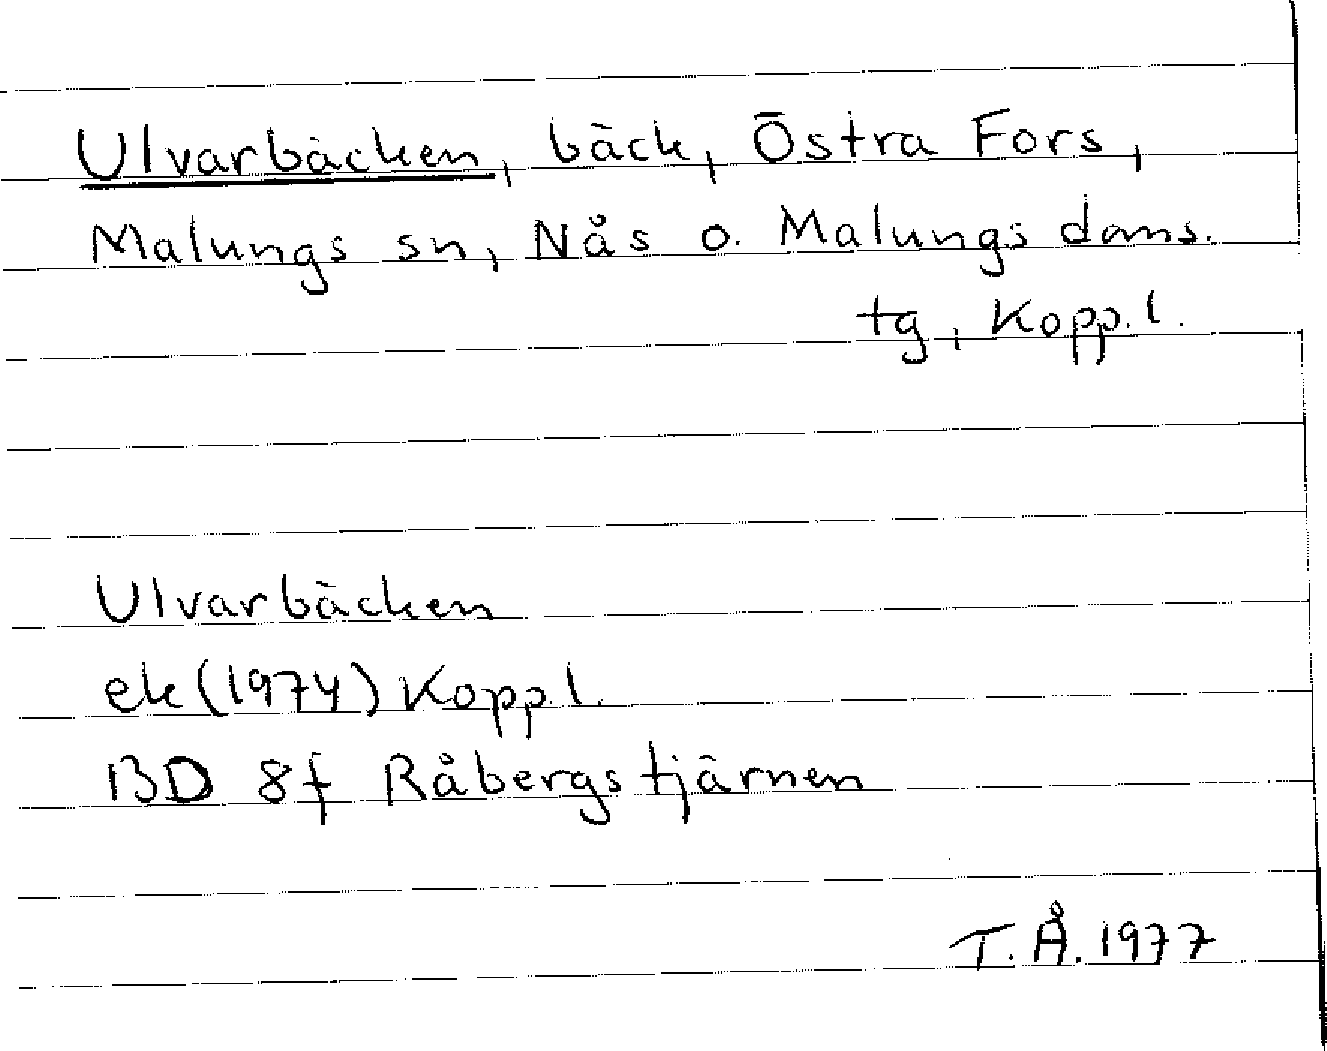 Ulvarbäcken, bäck, Östra Fors,
Malungs sn, Nås o. Malungs doms.
tg, Kopp. l.
Ulvarbäcken
ek (1974) Kopp. l.
BD 8f Råbergstjärnen
T. Å. 1977